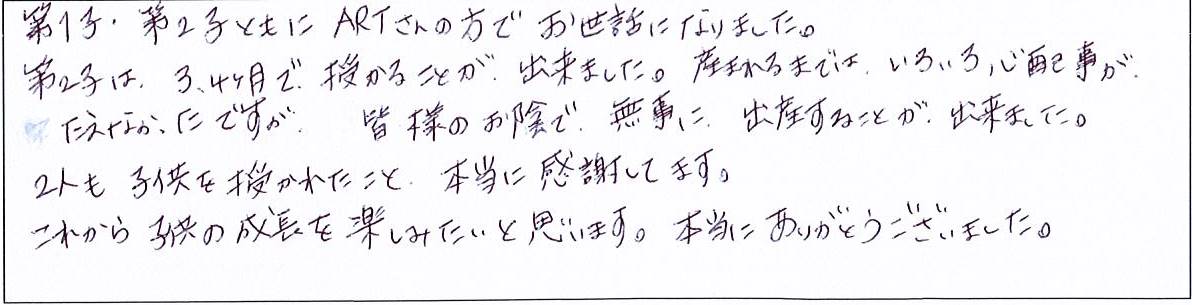 第1子・第2子ともに ARTさんの方で お世話になりました。
第2子は、3、4ヶ月で、授かることが、出来ました。産まれるまでは、いろいろ心配事が、
たえなかったですが、皆様のお陰で、無事に、出産することが、出来ました。
2人も 子供を授かれたこと、本当に感謝してます。
これから 子供の成長を楽しみたいと思います。本当にありがとうございました。